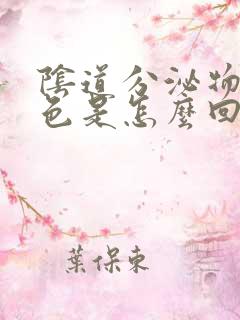 陰道分泌物
色是怎麼回
葉保東